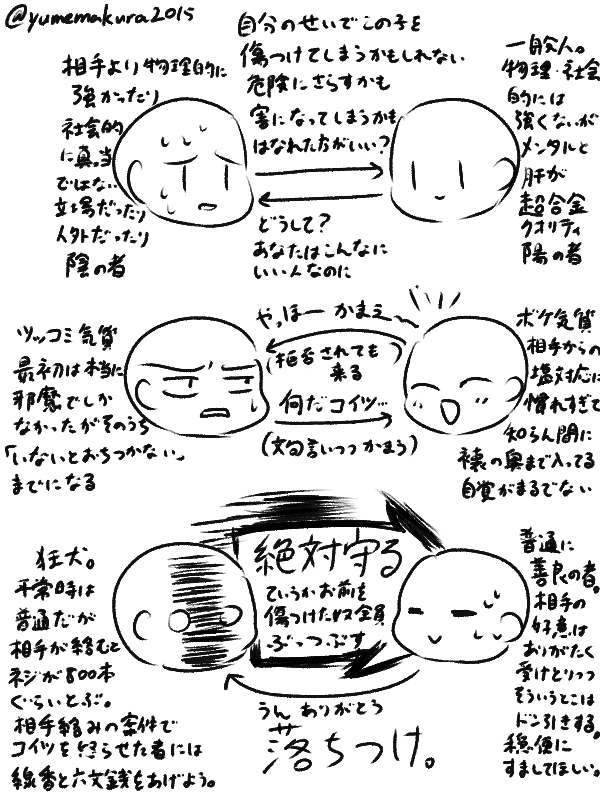 @yumemakura2015
自分のせいでこの子を
傷つけてしまうかもしれない
危険にさらすかも
害になってしまうかも
はなれた方がいい?
相手より物理的に
強かったり
社会的
に真当
ではない
立場だったり
人外だったり
陰の者
一般人。
物理・社会
的には
強くないが
メンタルと
肝が
超合金
クオリティ
陽の者
どうして?
あなたはこんなに
いい人なのに
ツッコミ気質
最初は本当に
邪魔でしか
なかったがそのうち
「いないとおちつかない」
までになる
やっほー かまえ〜
(拒否されても
来る)
何だコイツ…
(文句言いつつかまう)
ボケ気質
相手からの
塩対応に
慣れすぎて
知らん間に
懐の奥まで入ってる
自覚がまるでない
狂犬。
平常時は
普通だが
相手が絡むと
ネジが800本
ぐらいとぶ。
相手絡みの案件で
コイツを怒らせた者には
線香と六文銭をあげよう。
絶対守る
ていうかお前を
傷つけた奴全員
ぶっつぶす
うん ありがとう
落ちつけ。
普通に
善良の者。
相手の
好意は
ありがたく
受けとりつつ
そういうとこは
ドン引きする。
穏便に
すましてほしい。